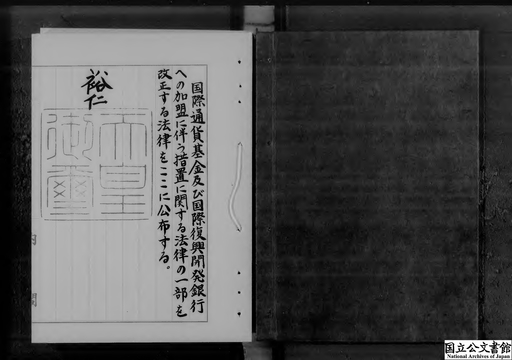 国際通貨基金及び国際復興開発銀行
への加盟に伴う措置に関する法律の一部を
改正する法律をここに公布する。
裕仁
天皇御璽
国立公文書館
National Archives of Japan